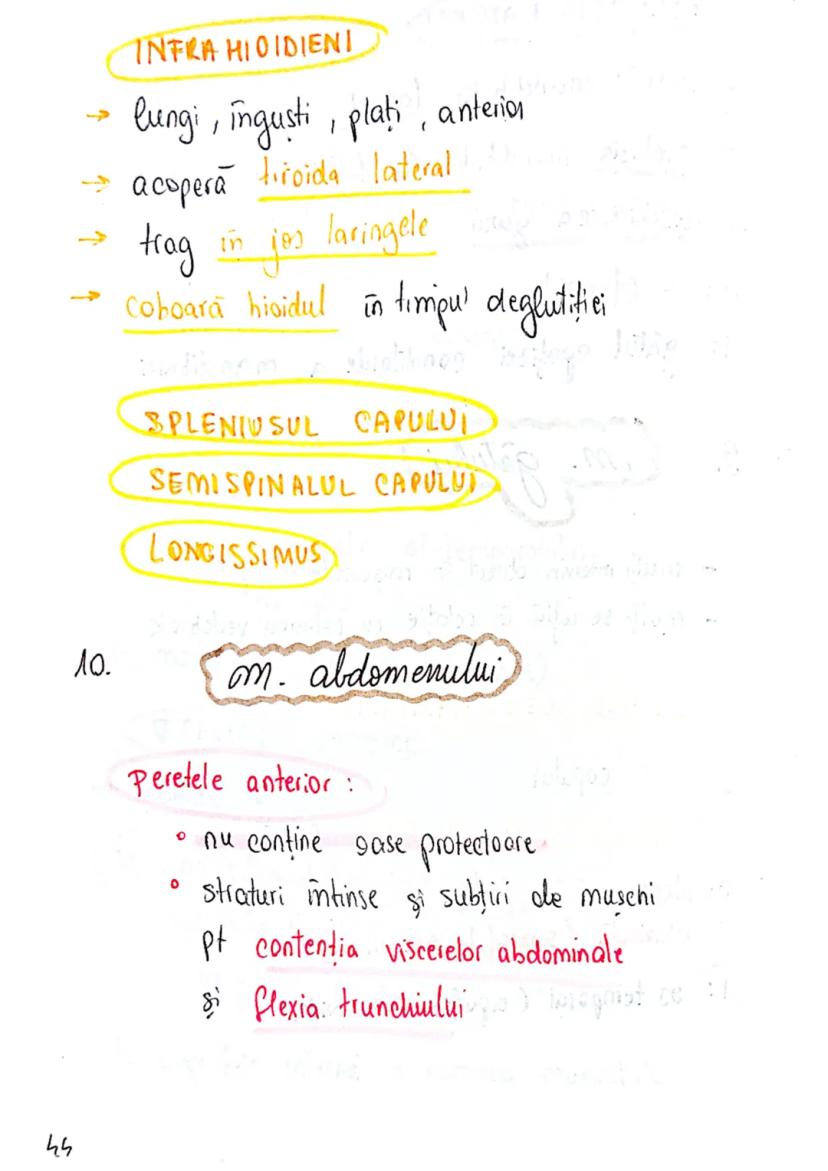 INFRAHIOIDIENI
→ lungi, înguști, plați, anterior
→ acoperă tiroida lateral
→ trag în jos laringele
→ coboară hioidul în timpul deglutiției
SPLENIUSUL CAPULUI
SEMISPINALUL CAPULUI
LONGISSIMUS
10. m. abdomenului
Peretele anterior:
° nu conține oase protectoare
° straturi întinse și subțiri de mușchi
pt contenția viscerelor abdominale
și flexia trunchiului
44